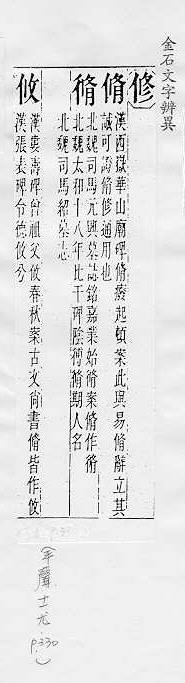 金石文字辨異
修
脩
漢西嶽華山廟碑脩廢起頓案此與易脩辭立其
誠可證脩修通用也
脩
北魏司馬元興墓誌銘嘉業始脩案脩作脩
北魏太和十八年比干碑陰穆脩期人名
北魏司馬紹墓志
攸
漢婁壽碑曾祖父攸春秋案古文尚書脩皆作攸
漢張表碑令德攸兮
(平聲十尤 p.330)